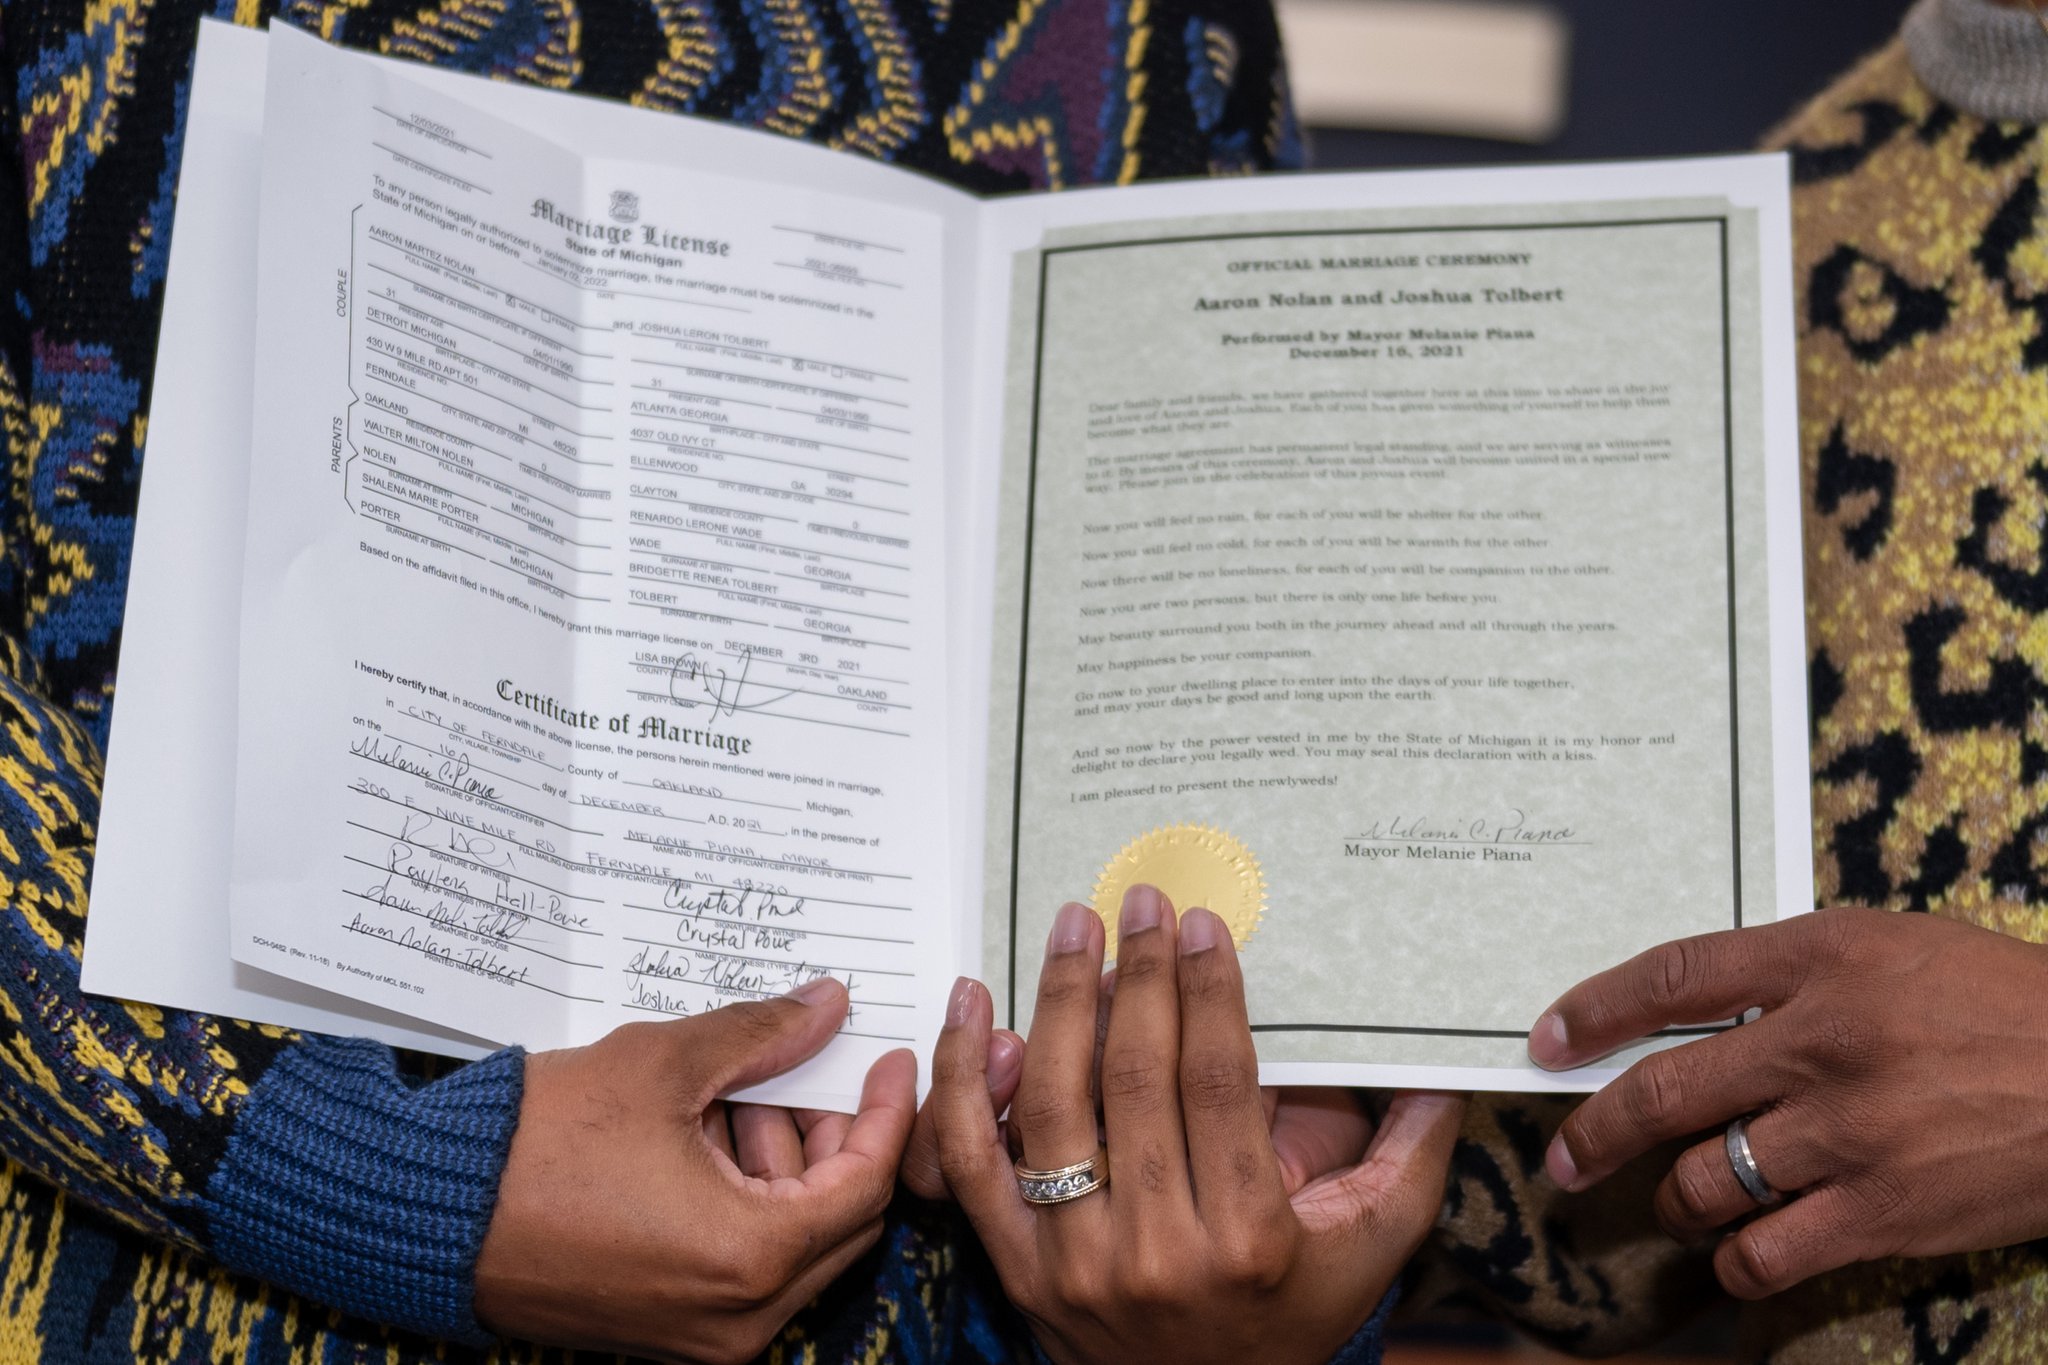 12/03/2021
DATE OF APPLICATION
DATE CERTIFICATE FILED
STATE FILE NO.
LOCAL FILE NO.
Marriage License
State of Michigan
To any person legally authorized to solemnize marriage, the marriage must be solemnized in the
State of Michigan on or before January 02, 2022
DATE
COUPLE
AARON MARTEZ NOLAN
FULL NAME (First, Middle, Last) X MALE FEMALE
SURNAME ON BIRTH CERTIFICATE, IF DIFFERENT
31 04/01/1990
PRESENT AGE DATE OF BIRTH
DETROIT MICHIGAN
BIRTHPLACE - CITY AND STATE
430 W 9 MILE RD APT 501
RESIDENCE NO. STREET
FERNDALE MI 48220
CITY, STATE, AND ZIP CODE
OAKLAND 0
RESIDENCE COUNTY TIMES PREVIOUSLY MARRIED
PARENTS
WALTER MILTON NOLEN
FULL NAME (First, Middle, Last)
NOLEN MICHIGAN
SURNAME AT BIRTH BIRTHPLACE
SHALENA MARIE PORTER
FULL NAME (First, Middle, Last)
PORTER MICHIGAN
SURNAME AT BIRTH BIRTHPLACE
and JOSHUA LERON TOLBERT
FULL NAME (First, Middle, Last) X MALE FEMALE
SURNAME ON BIRTH CERTIFICATE, IF DIFFERENT
31 04/03/1990
PRESENT AGE DATE OF BIRTH
ATLANTA GEORGIA
BIRTHPLACE - CITY AND STATE
4037 OLD IVY CT
RESIDENCE NO. STREET
ELLENWOOD GA 30294
CITY, STATE, AND ZIP CODE
CLAYTON 0
RESIDENCE COUNTY TIMES PREVIOUSLY MARRIED
RENARDO LERONE WADE
FULL NAME (First, Middle, Last)
WADE GEORGIA
SURNAME AT BIRTH BIRTHPLACE
BRIDGETTE RENEA TOLBERT
FULL NAME (First, Middle, Last)
TOLBERT GEORGIA
SURNAME AT BIRTH BIRTHPLACE
Based on the affidavit filed in this office, I hereby grant this marriage license on DECEMBER 3RD 2021
(Month, Day, Year)
LISA BROWN OAKLAND
COUNTY CLERK COUNTY
DEPUTY CLERK
Certificate of Marriage
I hereby certify that, in accordance with the above license, the persons herein mentioned were joined in marriage,
in CITY OF FERNDALE, County of OAKLAND Michigan,
CITY, VILLAGE, TOWNSHIP
on the 16 day of DECEMBER A.D. 2021, in the presence of
Melanie C. Piana MELANIE PIANA, MAYOR
SIGNATURE OF OFFICIANT/CERTIFIER NAME AND TITLE OF OFFICIANT/CERTIFIER (TYPE OR PRINT)
300 E NINE MILE RD FERNDALE, MI 48220
FULL MAILING ADDRESS OF OFFICIANT/CERTIFIER
SIGNATURE OF WITNESS SIGNATURE OF WITNESS
Hall-Powe Crystal Powe
NAME OF WITNESS (TYPE OR PRINT) NAME OF WITNESS (TYPE OR PRINT)
Joshua Nolan
SIGNATURE OF SPOUSE SIGNATURE OF
Aaron Nolan-Tolbert Joshua
PRINTED NAME OF SPOUSE
DCH-0482 (Rev. 11-18) By Authority of MCL 551.102
OFFICIAL MARRIAGE CEREMONY
Aaron Nolan and Joshua Tolbert
Performed by Mayor Melanie Piana
December 16, 2021
Dear family and friends, we have gathered together here at this time to share in the joy
and love of Aaron and Joshua. Each of you has given something of yourself to help them
become what they are.
The marriage agreement has permanent legal standing, and we are serving as witnesses
to it. By means of this ceremony, Aaron and Joshua will become united in a special new
way. Please join in the celebration of this joyous event.
Now you will feel no rain, for each of you will be shelter for the other.
Now you will feel no cold, for each of you will be warmth for the other.
Now there will be no loneliness, for each of you will be companion to the other.
Now you are two persons, but there is only one life before you.
May beauty surround you both in the journey ahead and all through the years.
May happiness be your companion.
Go now to your dwelling place to enter into the days of your life together,
and may your days be good and long upon the earth.
And so now by the power vested in me by the State of Michigan it is my honor and
delight to declare you legally wed. You may seal this declaration with a kiss.
I am pleased to present the newlyweds!
Melanie C. Piana
Mayor Melanie Piana